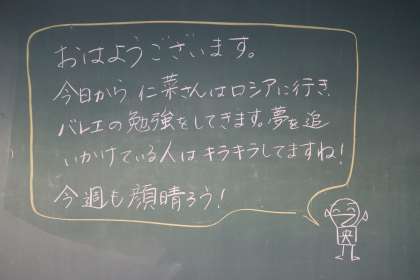 おはようございます。
今日から 仁菜さんはロシアに行き
バレエの勉強をしてきます。夢を追
いかけている人はキラキラしてますね!
今週も顔晴ろう!
央